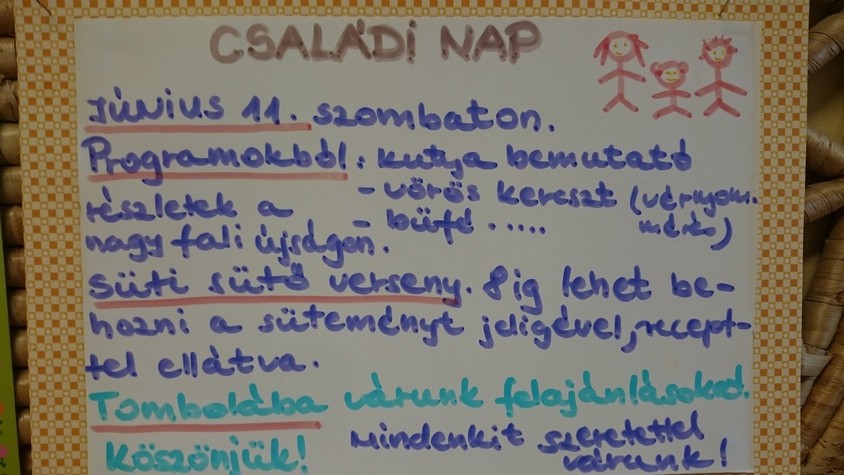 CSALÁDI NAP
Június 11. szombaton.
Programokból: kutya bemutató
- vörös kereszt (vérnyom.
mérés)
- büfé .....
részletek a
nagy fali újságon.
Süti sütő verseny. 8ig lehet be-
hozni a süteményt jeligével, recept-
tel ellátva.
Tombolába várunk felajánlásokat.
Köszönjük! Mindenkit szeretettel
várunk!